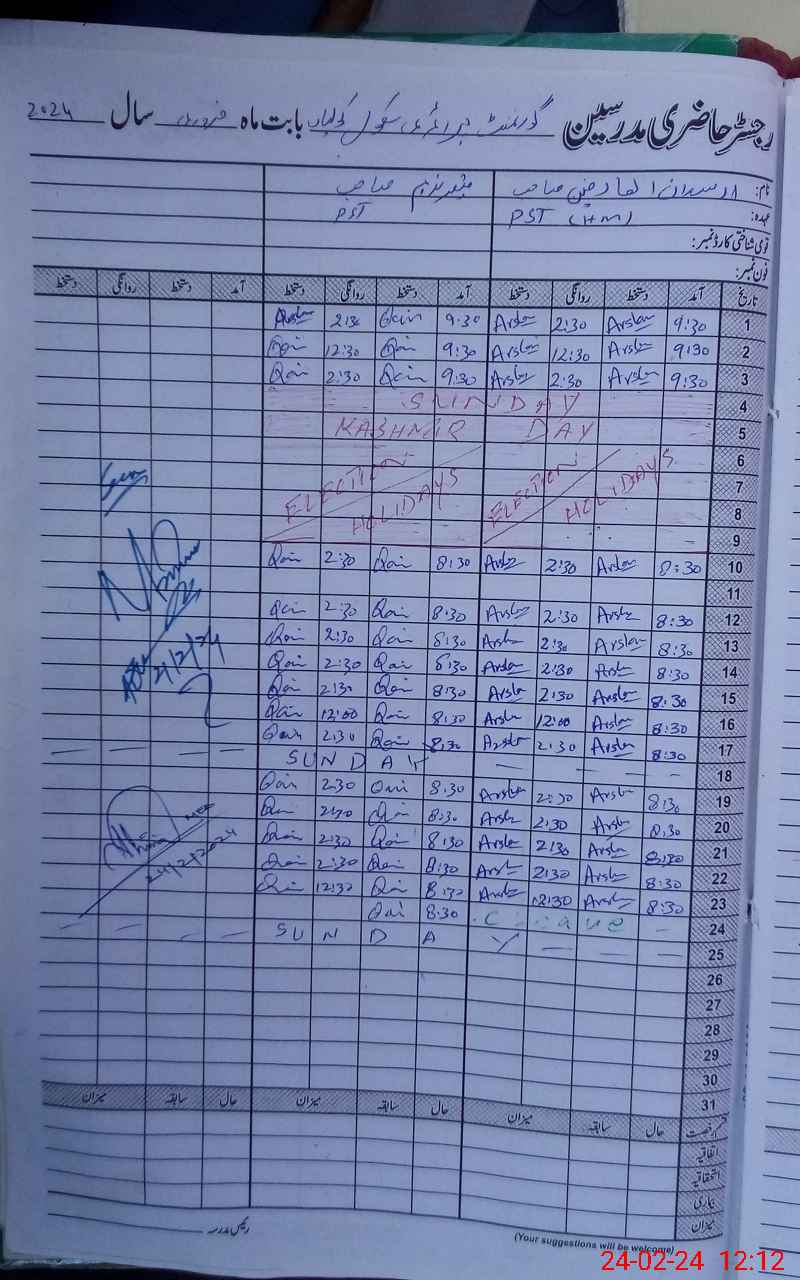 رجسٹر حاضری مدرسین گورنمنٹ پرائمری سکول بابت ماہ فروری سال 2024
نام: ارسلان صاحب صاحب
عہدہ: PST (HM) PST
قومی شناختی کارڈ نمبر:
فون نمبر:
تاریخ آمد دستخط روانگی دستخط آمد دستخط روانگی دستخط آمد دستخط روانگی دستخط
1 9:30 Arslan 2:30 Arslan 9:30 Qain 2:30 Arslan
2 9:30 Arslan 12:30 Arslan 9:30 Qain 12:30 Qain
3 9:30 Arslan 2:30 Arslan 9:30 Qain 2:30 Qain
4 SUNDAY
5 KASHMIR DAY
6
7 ELECTION HOLIDAYS ELECTION HOLIDAYS
8
9
10 8:30 Arslan 2:30 Arslan 8:30 Qain 2:30 Qain
11
12 8:30 Arslan 2:30 Arslan 8:30 Qain 2:30 Qain
13 8:30 Arslan 2:30 Arslan 8:30 Qain 2:30 Qain
14 8:30 Arslan 2:30 Arslan 8:30 Qain 2:30 Qain
21/2/24
15 8:30 Arslan 2:30 Arslan 8:30 Qain 2:30 Qain
16 8:30 Arslan 12:00 Arslan 8:30 Qain 12:00 Qain
17 8:30 Arslan 2:30 Arslan 8:30 Qain 2:30 Qain
18 SUNDAY
19 8:30 Arslan 2:30 Arslan 8:30 Qain 2:30 Qain
20 8:30 Arslan 2:30 Arslan 8:30 Qain 2:30 Qain
21 8:30 Arslan 2:30 Arslan 8:30 Qain 2:30 Qain
22 8:30 Arslan 2:30 Arslan 8:30 Qain 2:30 Qain
24/2/2024
23 8:30 Arslan 12:30 Arslan 8:30 Qain 12:30 Qain
24 C leave 8:30 Qain
25 SUNDAY
26
27
28
29
30
31
قسم رخصت حال سابقہ میزان حال سابقہ میزان حال سابقہ میزان
اتفاقیہ
استحقاقیہ
بیماری
میزان
رئیس مدرسہ
(Your suggestions will be welcome)
24-02-24 12:12